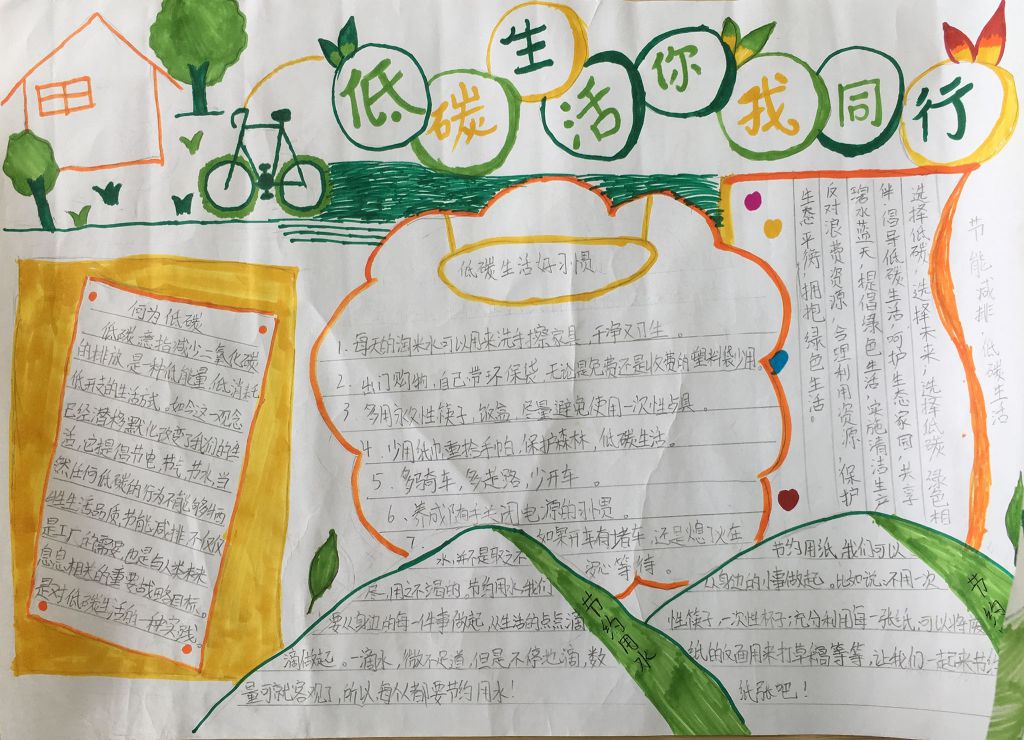 低碳生活你我同行
何为低碳
低碳意指减少二氧化碳
的排放是一种低能量、低消耗
低开支的生活方式。如今这一观念
已经潜移默化改变了我们的生
活,它提倡节电、节气、节水,当
然任何低碳的行为不能够牺
牲生活品质,节能减排,不仅仅
是工厂的需要,也是与人类未来
息息相关的重要战略目标。
是对低碳生活的一种实践。
低碳生活好习惯
1、每天的淘米水可以用来洗手擦家具,干净又卫生。
2、出门购物,自己带环保袋,无论是免费还是收费的塑料袋少用。
3、多用永久性筷子、饭盒,尽量避免使用一次性占具。
4、少用纸巾重拾手帕,保护森林,低碳生活。
5、多骑车,多走路,少开车。
6、养成随手关闭电源的习惯。
7、如果开车有堵车,还是熄火在
安心等待。
选择低碳,选择未来,选择低碳,绿色相
伴,倡导低碳生活,呵护生态家园,共享
碧水蓝天,提倡绿色生活,实施清洁生产
反对浪费资源,合理利用资源,保护
生态平衡,拥抱绿色生活。
节能减排,低碳生活
水,并不是取之不
尽,用之不渴的,节约用水我们
要从身边的每一件事做起,从生活的点点滴
滴做起。一滴水,微不足道,但是不停地滴,数
量可就客观了,所以,每个人都要节约用水!
节约用水
节约用纸,我们可以
从身边的小事做起。比如说:不用一次
性筷子,一次性杯子;充分利用每一张纸,可以将废
纸的反面用来打草稿等等,让我们一起来节约
纸张吧!
节约